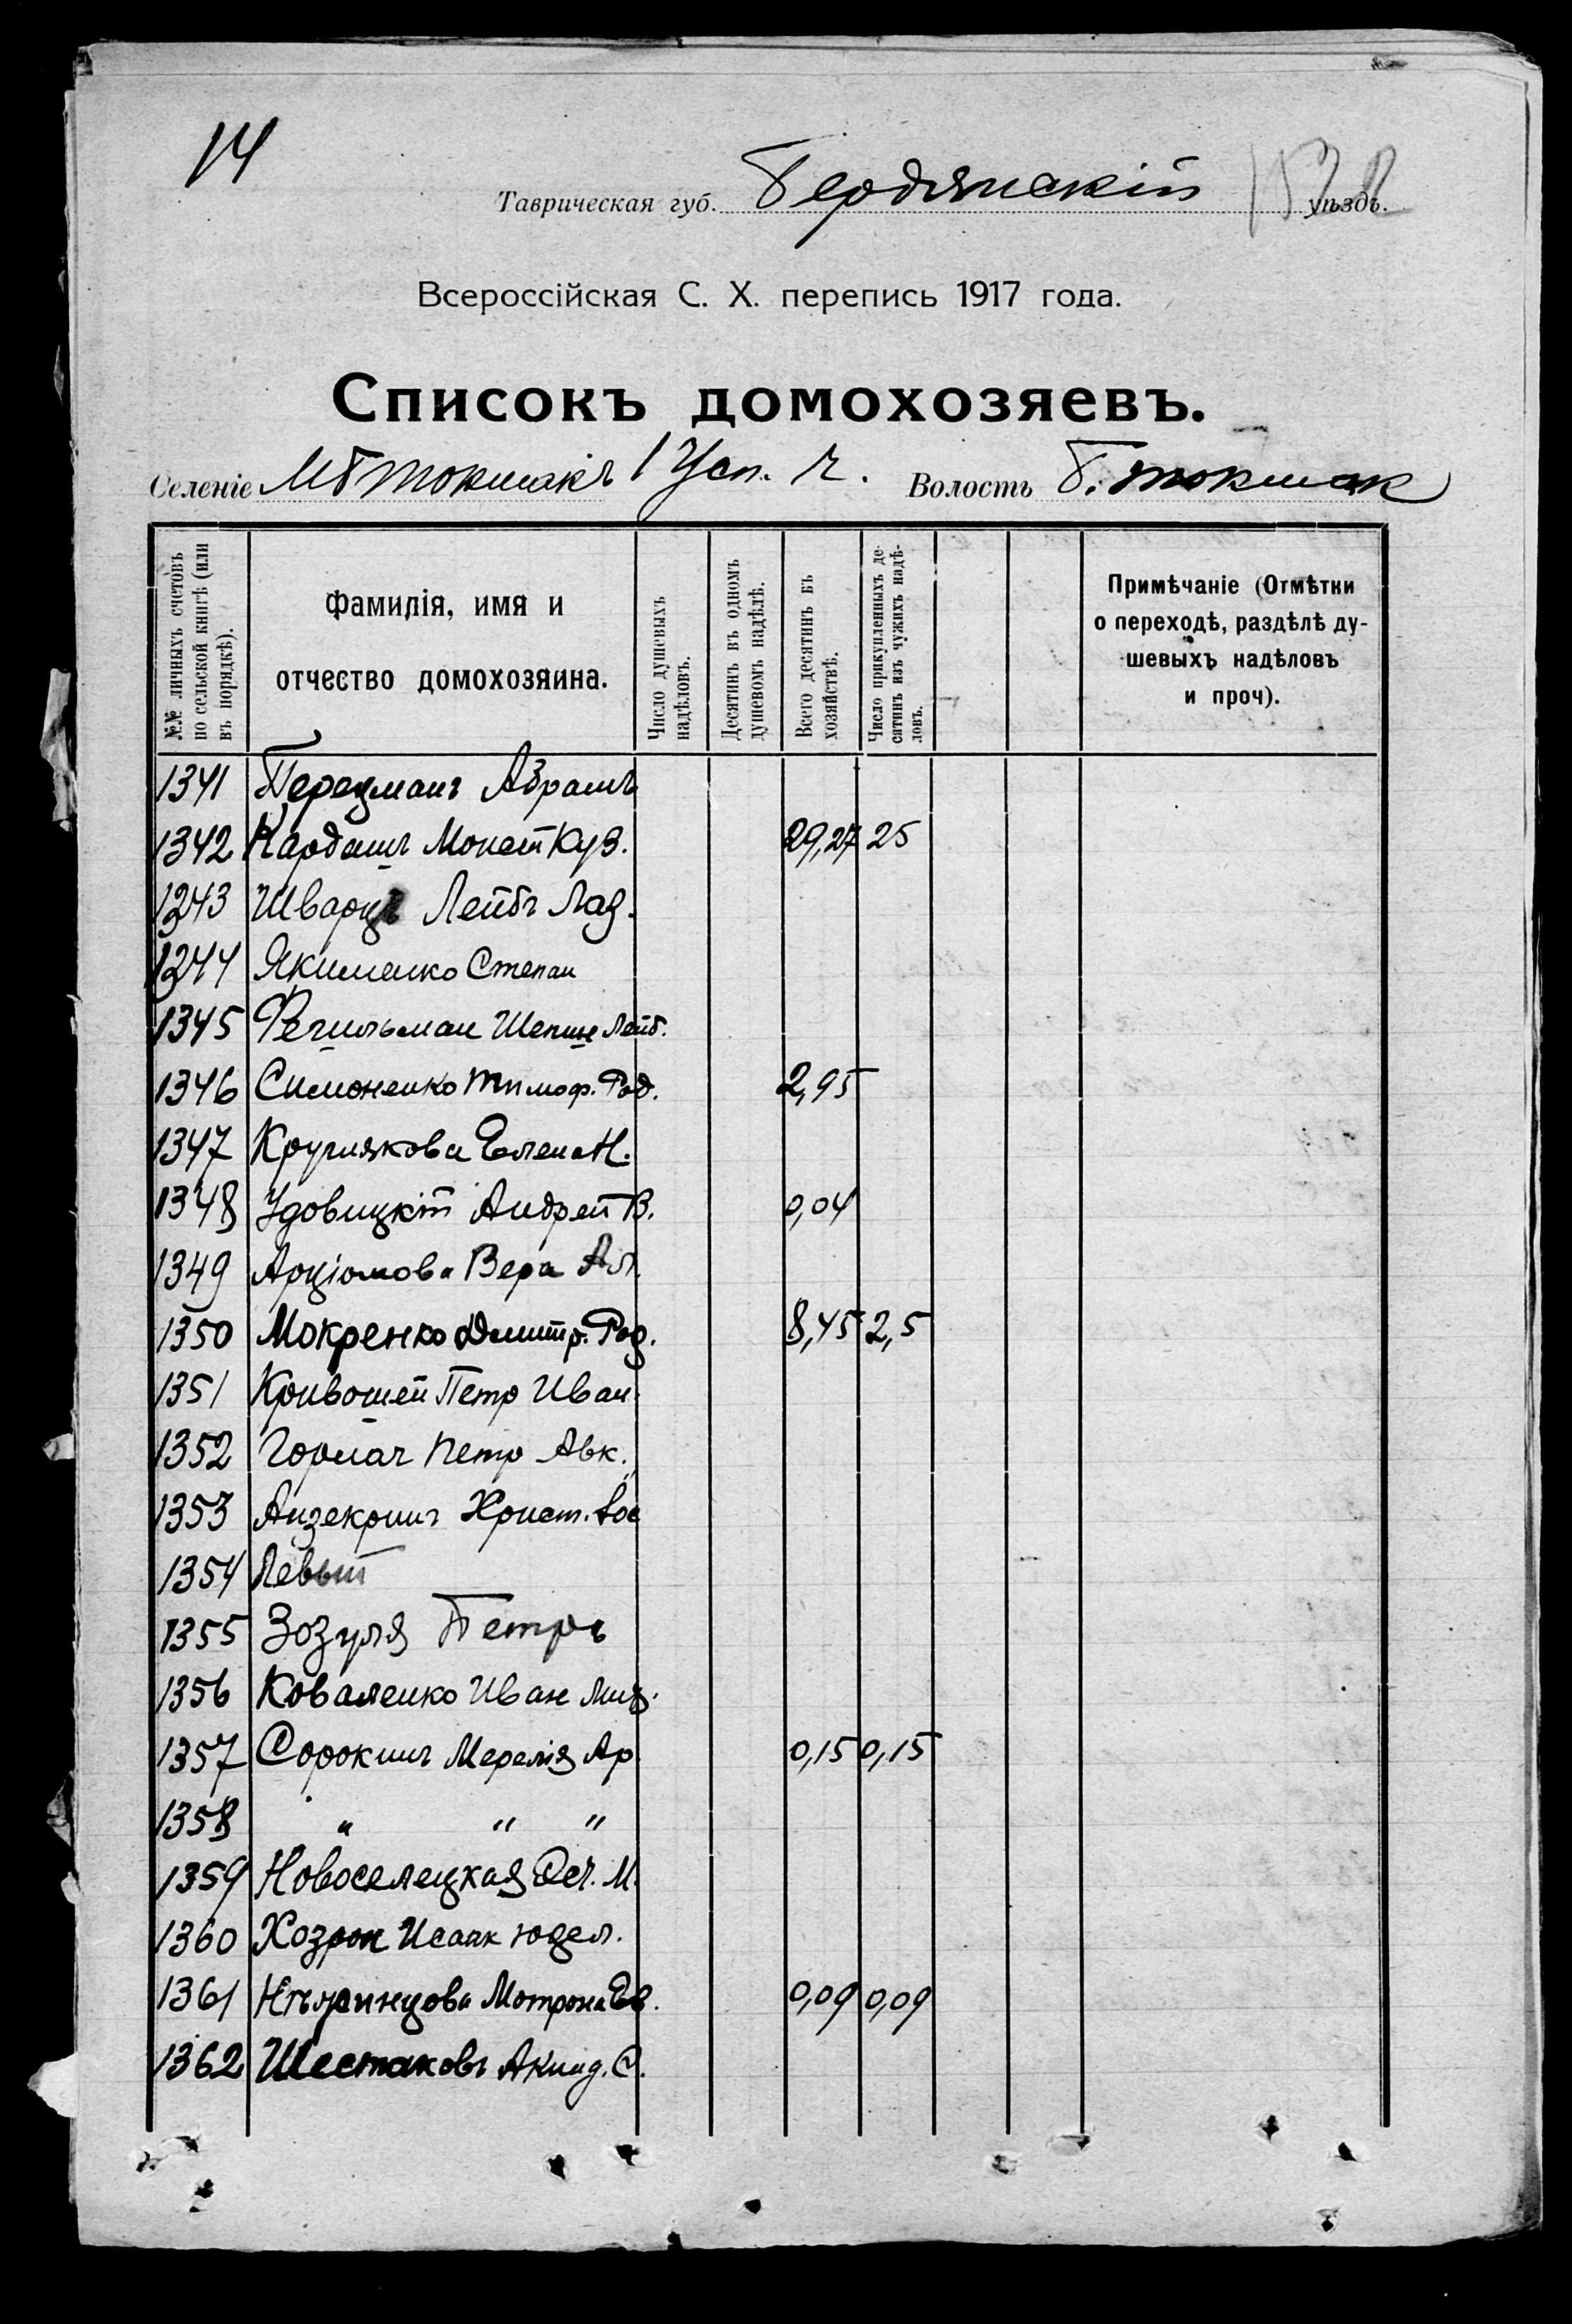 14
Таврическая губ. Бердянскій уѣздъ.
Всероссійская С. Х. перепись 1917 года.
Списокъ домохозяевъ.
Селеніе МБ Токмакъ 1 Усп. ч. Волость Б. Токмак
№№ личныхъ счетовъ по сельской книгѣ (или въ порядкѣ).
Фамилія, имя и отчество домохозяина.
Число душевыхъ надѣловъ.
Десятинъ въ одномъ душевомъ надѣлѣ.
Всего десятинъ въ хозяйствѣ.
Число прикупленныхъ десятинъ изъ чужихъ надѣловъ.
Примѣчаніе (Отмѣтки о переходѣ, раздѣлѣ душевыхъ надѣловъ и проч).
1341 Перецманъ Абрамъ
1342 Кардашъ Моисей Куз. 29,27 25
1343 Шварцъ Лейбъ Лаз.
1344 Якименко Степан
1345 Фегильман Лейб.
1346 Симоненко Тимоф. Род. 2,95
1347 Круглякова Елена Н.
1348 Удовицкій Андрей В. 0,04
1349 Арціомова Вера Ал.
1350 Мокренко Дмитр. Род. 8,45 2,5
1351 Кривошей Петр Иван.
1352 Горпач Петр Авк.
1353 Христ.
1354 Левый
1355 Зозуля Петръ
1356 Коваленко Иван Мих.
1357 Сорокинъ Ар 0,15 0,15
1358 " " "
1359 Новоселецкая М.
1360 Хозрон Исаак Юдел.
1361 Нѣжинцова Мотрона Ев. 0,09 0,09
1362 Шестаковъ Акинд. С.